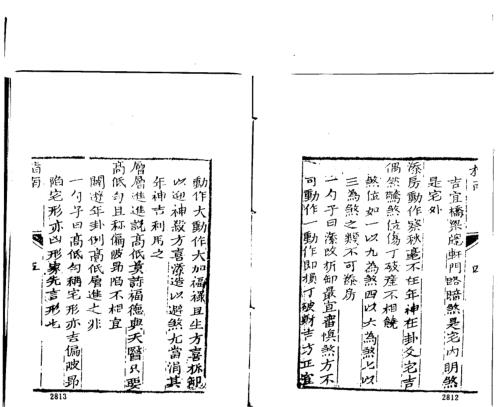 吉宜橋梁碗軒門路暗煞是宅内明煞
是宅外
添房動作察秋毫不在年神在卦爻宅吉
偶然驕煞位傷丁破産不相饒
煞位如一以九為煞四以六為煞七以
三為煞之類不可添房
一勺子曰添改拆卸最宜審慎煞方不
可動作一動作即損丁破財吉方正宜
2812
動作大動作大加福祿且生方喜拆卸
以迎神殺方喜添造以避煞尤當涓其
年神吉利馬之
層層進進說高低黃詩福德與天醫只要
高低勻且称偏陂昴陷不相宜
關遊年卦例高低層進之非
一勺子曰高低勻稱宅形亦吉偏陂昴
陷宅形亦凶形家先言形也
指南
五
2813